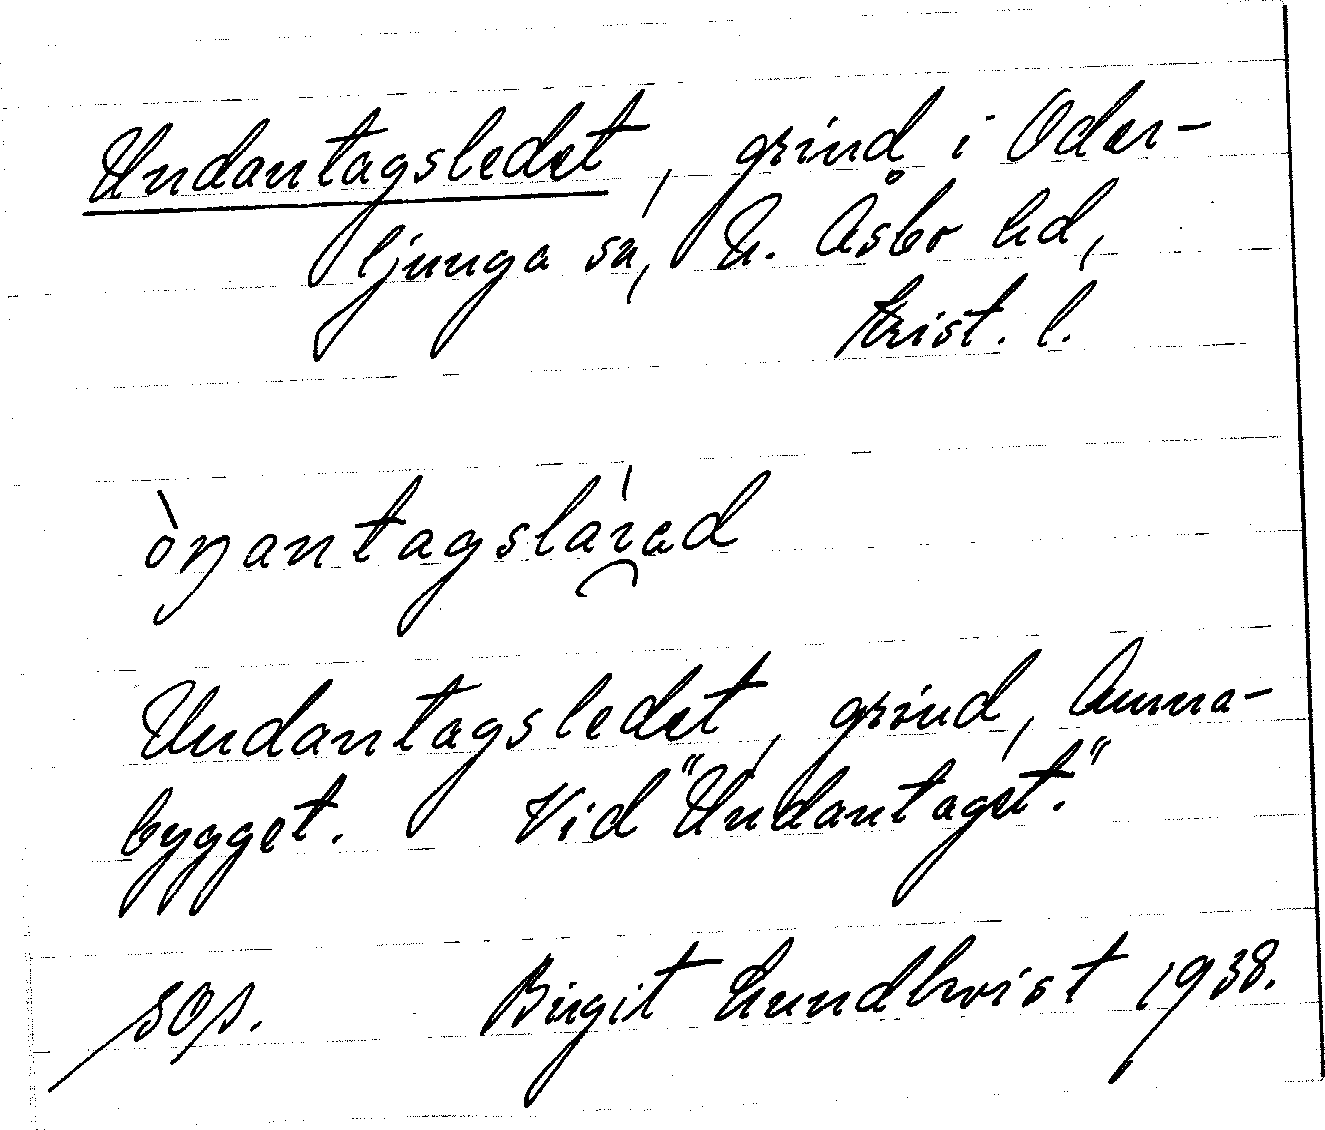 Undantagsledet, grind i Oder-
ljunga sn, N. Åsbo hd,
Krist. l.
òŋantagslái̯ad
Undantagsledet, grind, Anna-
bygget. Vid "Undantaget."
sos. Birgit Lundkvist 1938.